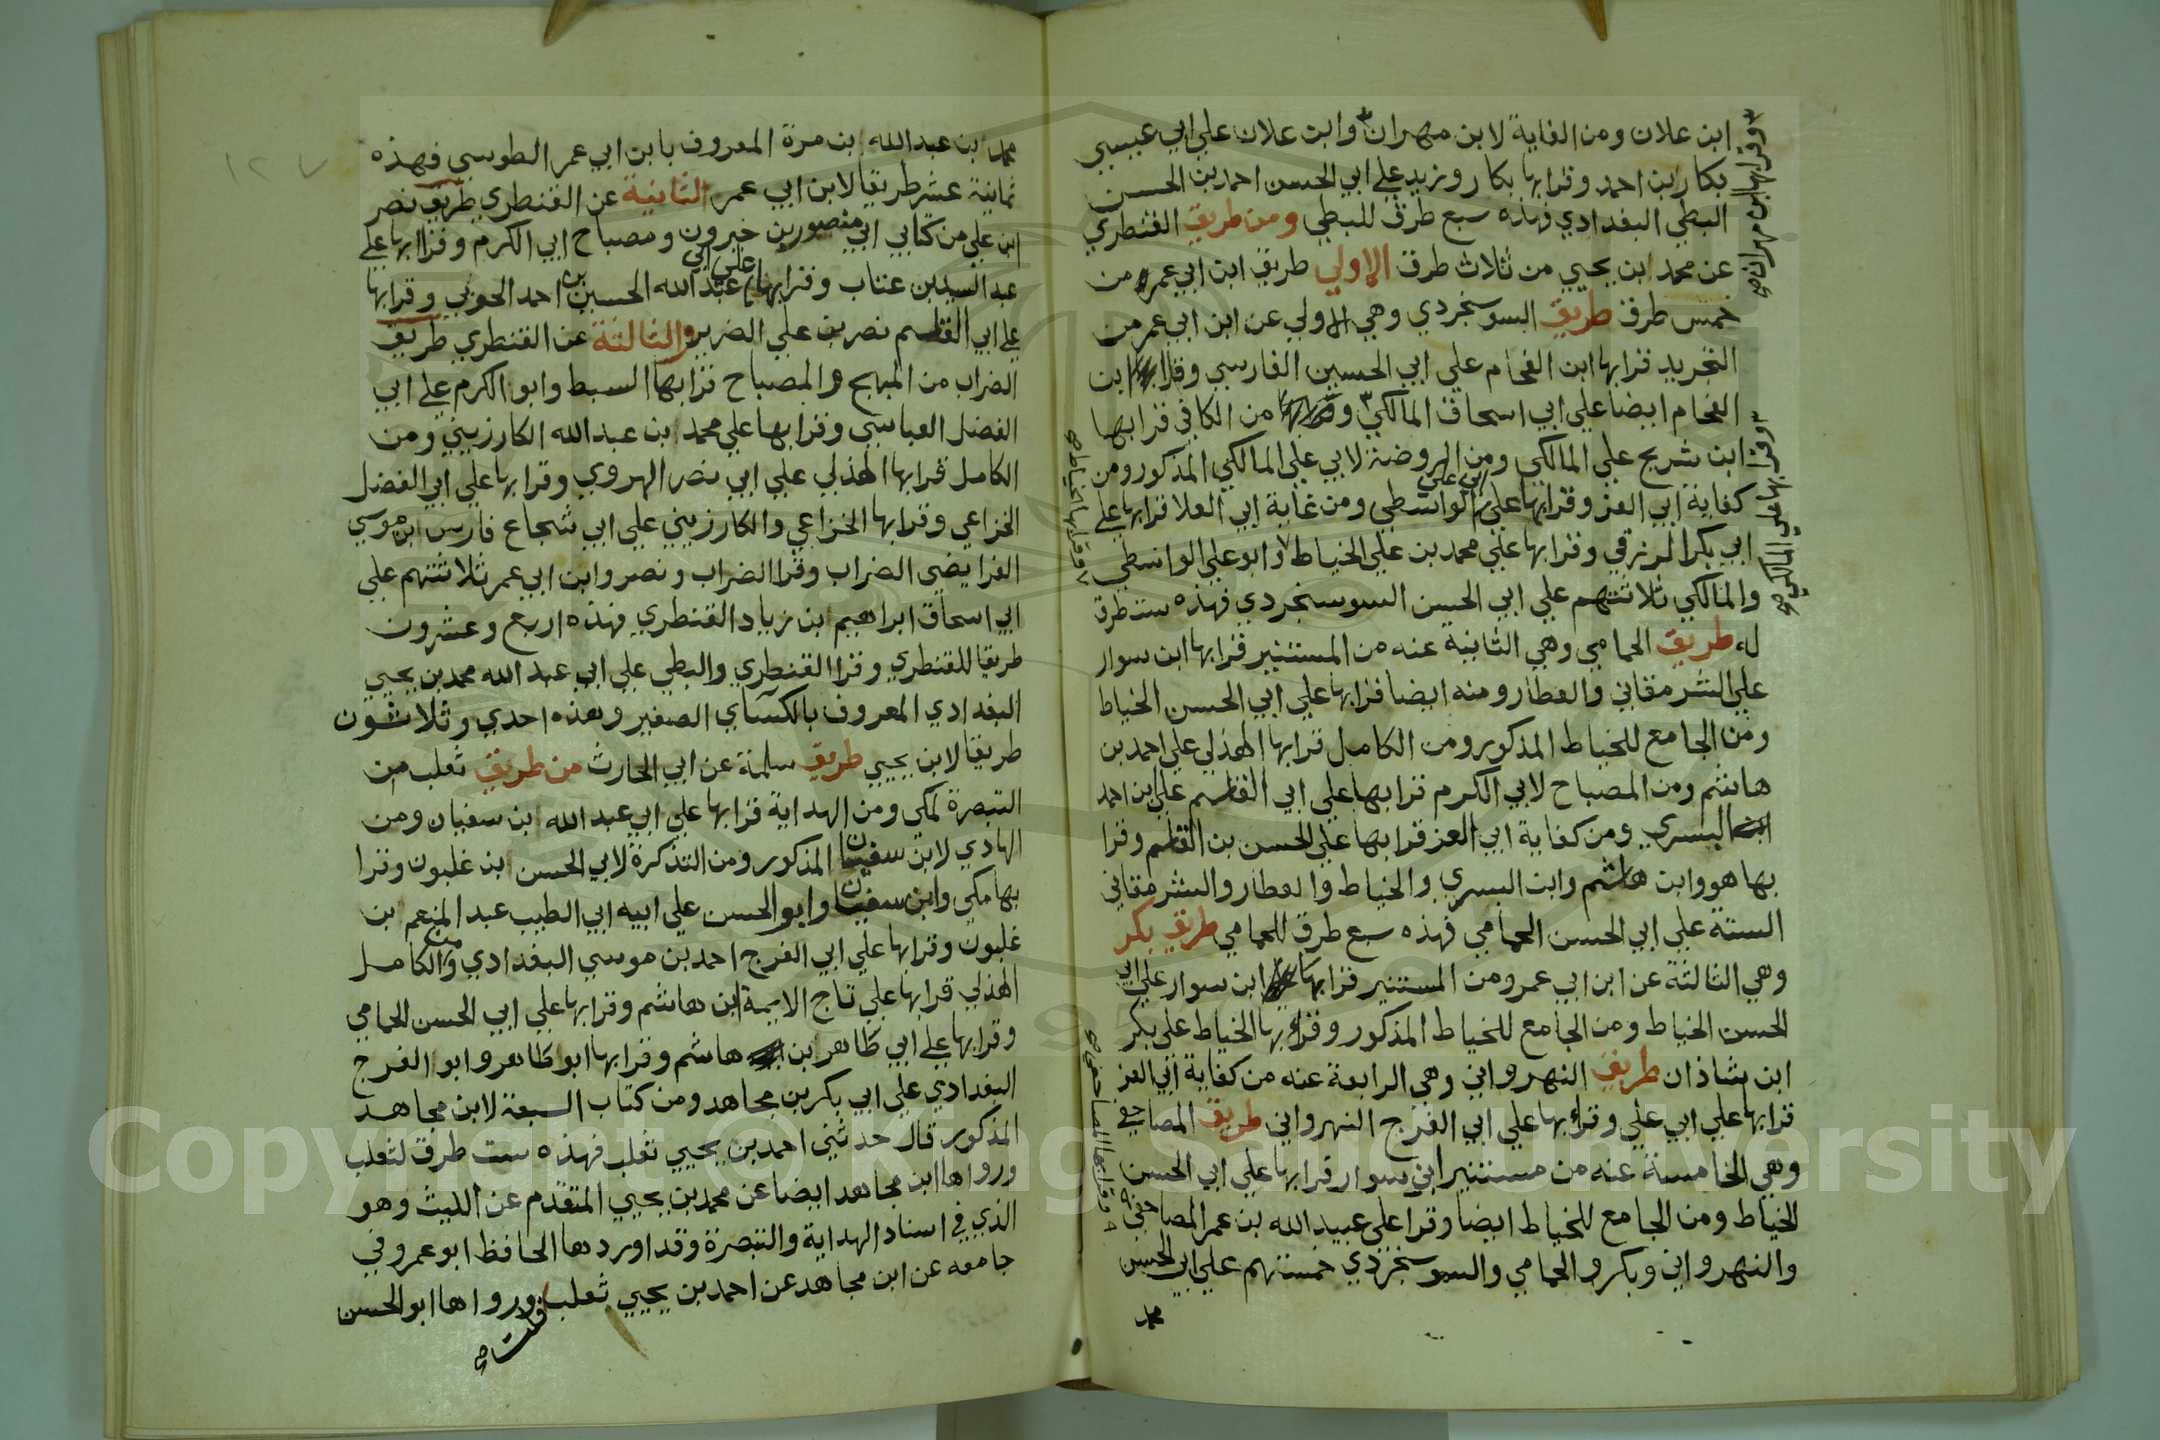 ابن علان ومن الغاية لابن مهران وابن علان علي ابي عيسي
بكار بن احمد وقرابها بكار وزيد علي ابي الحسن احمد بن الحسن
البطي البغدادي فهذه سبع طرق للبطي ومن طريق القنطري
عن محمد ابن يحيي من ثلاث طرق الاولي طريق ابن ابي عمر من
خمس طرق طريق السوسنجردي وهي الاولي عن ابن ابي عمر من
التجريد قرابها ابن الفحام علي ابي الحسين الفارسي وقرابها ابن
الفحام ايضا علي ابي اسحاق المالكي ومن الكافي قرابها
ابن شريح علي المالكي ومن الروضة لابي علي المالكي المذكور ومن
كفاية ابي العز وقرابها علي ابي علي الواسطي ومن غاية ابي العلا قرابها علي
ابي بكر المزرقي وقرابها علي محمد بن علي الخياط وابو علي الواسطي
والمالكي ثلاثتهم علي ابي الحسن السوسنجردي فهذه ست طرق
له طريق الحمامي وهي الثانية عنه من المستنير قرابها ابن سوار
علي الشرمقاني والعطار ومنه ايضا قرابها علي ابي الحسن الخياط
ومن الجامع للخياط المذكور ومن الكامل قرابها الهذلي علي احمد بن
هاشم ومن المصباح لابي الكرم قرابها علي ابي القاسم علي ابن احمد
ابن البسري ومن كفاية ابي العز قرابها علي الحسن بن القاسم وقرا
بها هو وابن هاشم وابن البسري والخياط والعطار والشرمقاني
الستة علي ابي الحسن الحمامي فهذه سبع طرق للحمامي طريق بكر
وهي الثالثة عن ابن ابي عمر ومن المستنير قرابها ابن سوار علي ابي
الحسن الخياط ومن الجامع للخياط المذكور وقرابها الخياط علي بكر
ابن شاذان طريق النهرواني وهي الرابعة عنه من كفاية ابي العز
قرابها علي ابي علي وقرابها علي ابي الفرج النهرواني طريق المصاحفي
وهي الخامسة عنه من مستنير ابن سوار قرابها علي ابي الحسن
الخياط ومن الجامع للخياط ايضا وقرا علي عبيد الله بن عمر المصاحفي
والنهرواني وبكر والحمامي والسوسنجردي خمستهم علي ابي الحسن
محمد
وقرابها ابن مهران صح
وقرابها علي المالكي صح
وقرابها الخياط صح
وقرابها المصاحفي صح
محمد ابن عبد الله ابن مرة المعروف بابن ابي عمر الطوسي فهذه
ثمانية عشر طريقا لابن ابي عمر الثانية عن القنطري طريق نصر
ابن علي من كتابي ابي منصور بن خيرون ومصباح ابي الكرم وقراابها علي
عبد السيد بن عتاب وقرابها علي ابي عبد الله الحسين بن احمد الحربي وقرابها
علي ابي القاسم نصر بن علي الضرير والثالثة عن القنطري طريق
الضراب من المبهج والمصباح قرابها السبط وابو الكرم علي ابي
الفضل العباسي وقرابها علي محمد ابن عبد الله الكارزيني ومن
الكامل قرابها الهذلي علي ابي نصر الهروي وقرابها علي ابي الفضل
الخزاعي وقرابها الخزاعي والكارزيني علي ابي شجاع فارس ابن موسي
الفرايضي الضراب وقرا الضراب ونصر وابن ابي عمر ثلاثتهم علي
ابي اسحاق ابراهيم ابن زياد القنطري فهذه اربع وعشرون
طريقا للقنطري وقرا القنطري والبطي علي ابي عبد الله محمد بن يحيي
البغدادي المعروف بالكساي الصغير وهذه احدي وثلاثون
طريقا لابن يحيي طريق سلمة عن ابي الحارث من طريق ثعلب من
التبصرة لمكي ومن الهداية قرابها علي ابي عبد الله ابن سفيان ومن
الهادي لابن سفيان المذكور ومن التذكرة لابي الحسن ابن غلبون وقرا
بها مكي وابن سفيان وابو الحسن علي ابيه ابي الطيب عبد المنعم بن
غلبون وقرابها علي ابي الفرج احمد بن موسي البغدادي ومن الكامل
الهذلي قرابها علي تاج الايمة ابن هاشم وقرابها علي ابي الحسن الحمامي
وقرابها علي ابي طاهر بن هاشم وقرابها ابو طاهر وابو الفرج
البغدادي علي ابي بكر بن مجاهد ومن كتاب السبعة لابن مجاهد
المذكور قال حدثني احمد بن يحيي ثعلب فهذه ست طرق لثعلب
ورواها ابن مجاهد ايضا عن محمد بن يحيي المتقدم عن الليث وهو
الذي في اسناد الهداية والتبصرة وقد اوردها الحافظ ابو عمرو في
جامعه عن ابن مجاهد عن احمد بن يحيي ثعلب ورواها ابو الحسن
قلت صح
١٢٧
Copyright © King Saud University